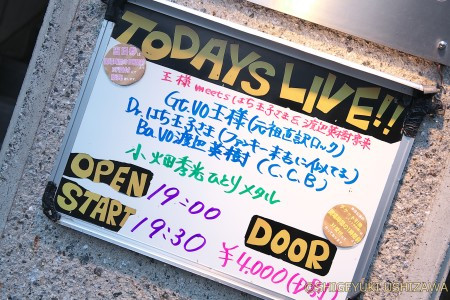 TODAYS LIVE!!
王様 meets はち王子さま & 渡辺英樹家来
Gt.Vo 王様 (元祖直訳ロック)
Dr. はち王子さま (ファンキー末吉に似てる)
Ba.Vo 渡辺英樹 (C.C.B)
小畑秀光ひとりメタル
OPEN 19:00
START 19:30
DOOR
¥4,000 (D別)
©SHIGEYUKI USHIZAWA